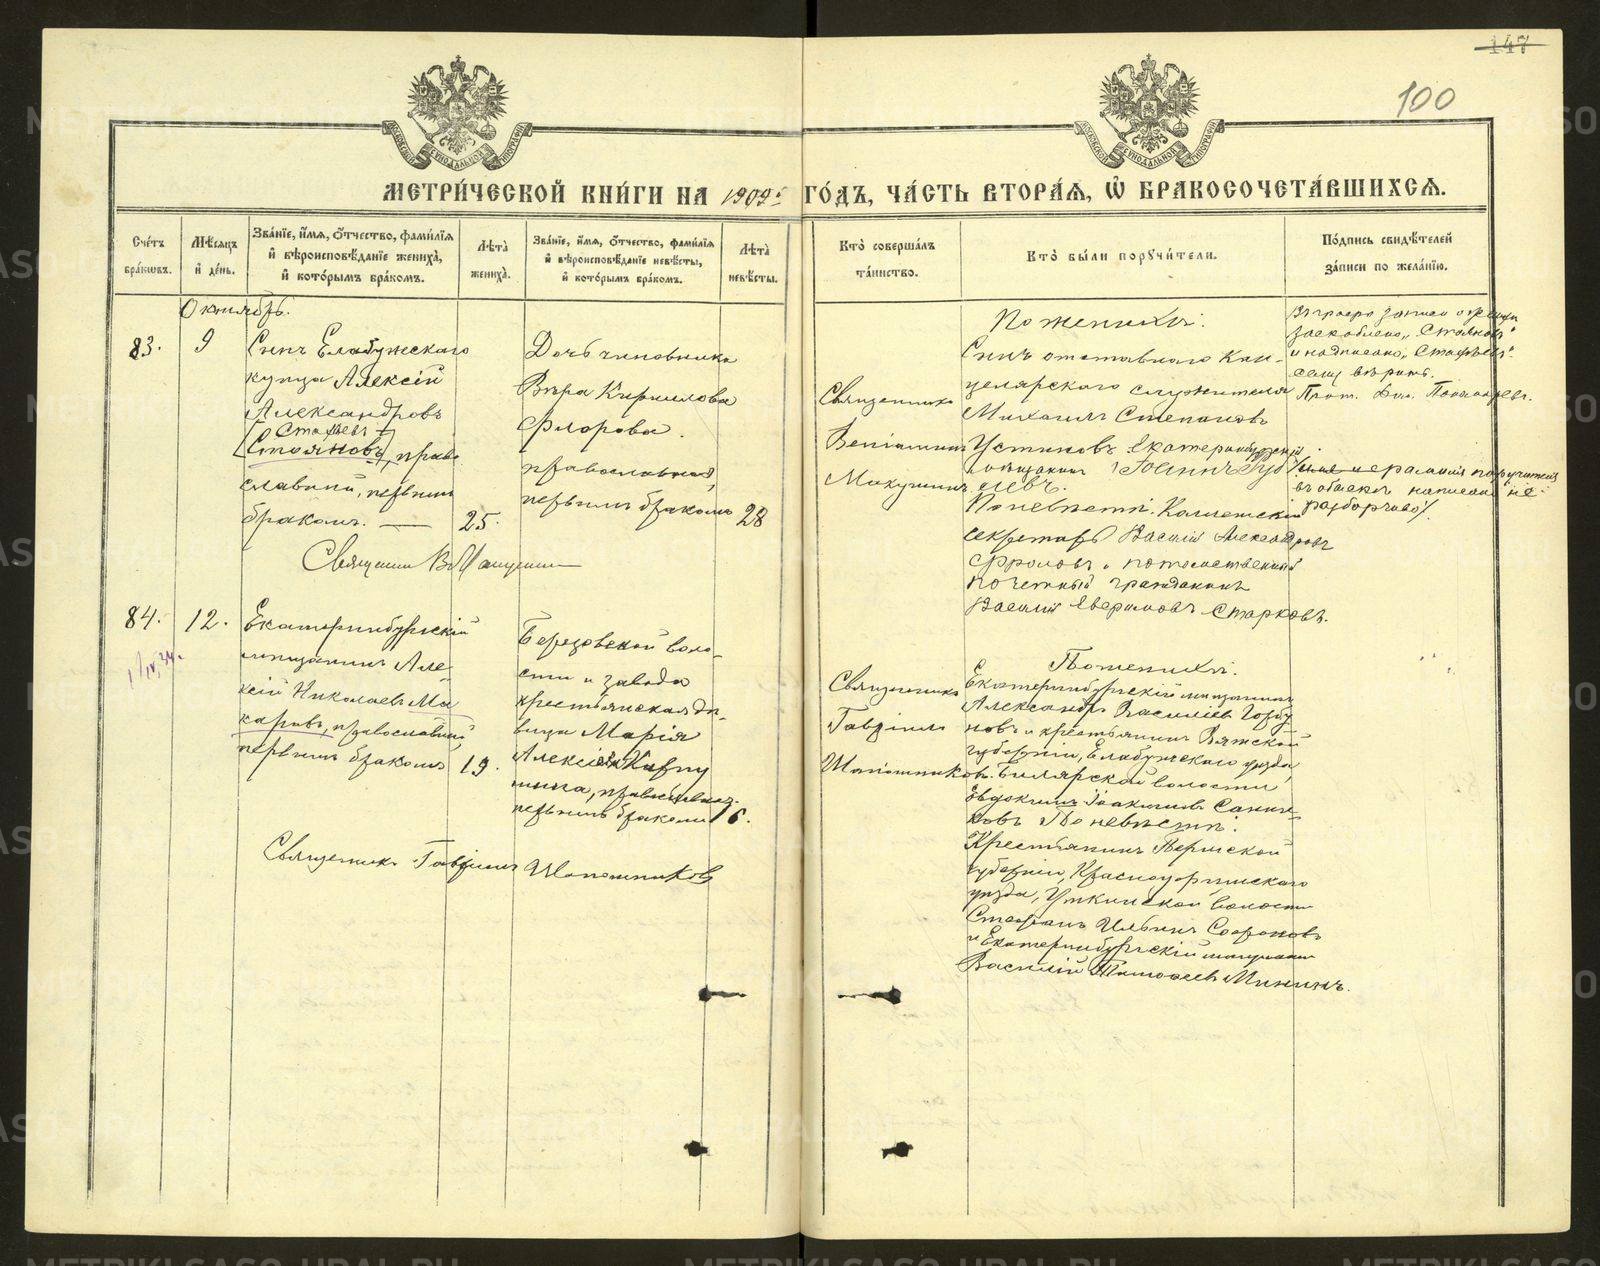 147
100
МЕТРИ́ЧЕСКОЙ КНИ́ГИ НА 1909 ГО́ДЪ, ЧА́СТЬ ВТОРА́Ѧ, Ѡ҆ БРАКОСОЧЕТА́ВШИХСѦ.
Сче́тъ браковъ.
Мѣсяцъ и день.
Зва́нїе, и́мя, ѻ҆тчество, фами́лїя и вѣроисповѣданїе жениха̀, и кото́рымъ бра́комъ.
Лѣта̀ жениха̀.
Зва́нїе, и́мя, ѻ҆тчество, фами́лїя и вѣроисповѣданїе невѣсты, и кото́рымъ бра́комъ.
Лѣта̀ невѣсты.
Кто̀ соверша́лъ та́инство.
Кто̀ бы́ли поручи́тели.
По́дпись свидѣтелей за́писи по жела́нїю.
Октябрь.
83.
9
Сынъ Елабужскаго
купца Алексій
Александровъ
Стафѣевъ
[Стояновъ], право-
славный, первымъ
бракомъ.
25.
Дочь чиновника
Вѣра Кириллова
Флорова.
православная,
первымъ бракомъ
28
Священникъ
Веніаминъ
Макушинъ
По женихѣ:
Сынъ отставного кан-
целярскаго служителя
Михаилъ Степановъ
Устиновъ Екатеринбургскій
мѣщанинъ Іоаннъ
По невѣстѣ: Коллежскій
секретарь Василій Александровъ
Фроловъ и потомственный
почетный гражданинъ
Василій Аверамовъ Старковъ.
Въ графѣ записи о женихѣ
заскоблено „Стояновъ"
и надписано „Стафѣевъ"
сему вѣрить.
Прот.
/имя и фамилія поручителя
въ обыскѣ написаны не
разборчиво/.
Священникъ В. Макушинъ
84.
12.
Екатеринбургскій
мѣщанинъ Але-
ксій Николаевъ Ма-
каровъ, православный,
первымъ бракомъ
19.
Березовской воло-
сти и завода
крестьянская дѣ-
вица Марія
Алексіева
православная,
первымъ бракомъ
16.
Священникъ
Гавріилъ
Шапошниковъ.
По женихѣ:
Екатеринбургскій мѣщанинъ
Александръ Василіевъ Горбу-
новъ и крестьянинъ Вятской
губерніи, Елабужскаго уѣзда,
Билярской волости
Евдокимъ Іоакимовъ Санни-
ковъ По невѣстѣ:
Крестьянинъ Пермской
губерніи, Красноуфимскаго
уѣзда, Уткинской волости
Стефанъ Ильинъ Софоновъ
и Екатеринбургскій мѣщанинъ
Василій Тимофеевъ Мининъ.
Священникъ Гавріилъ Шапошниковъ